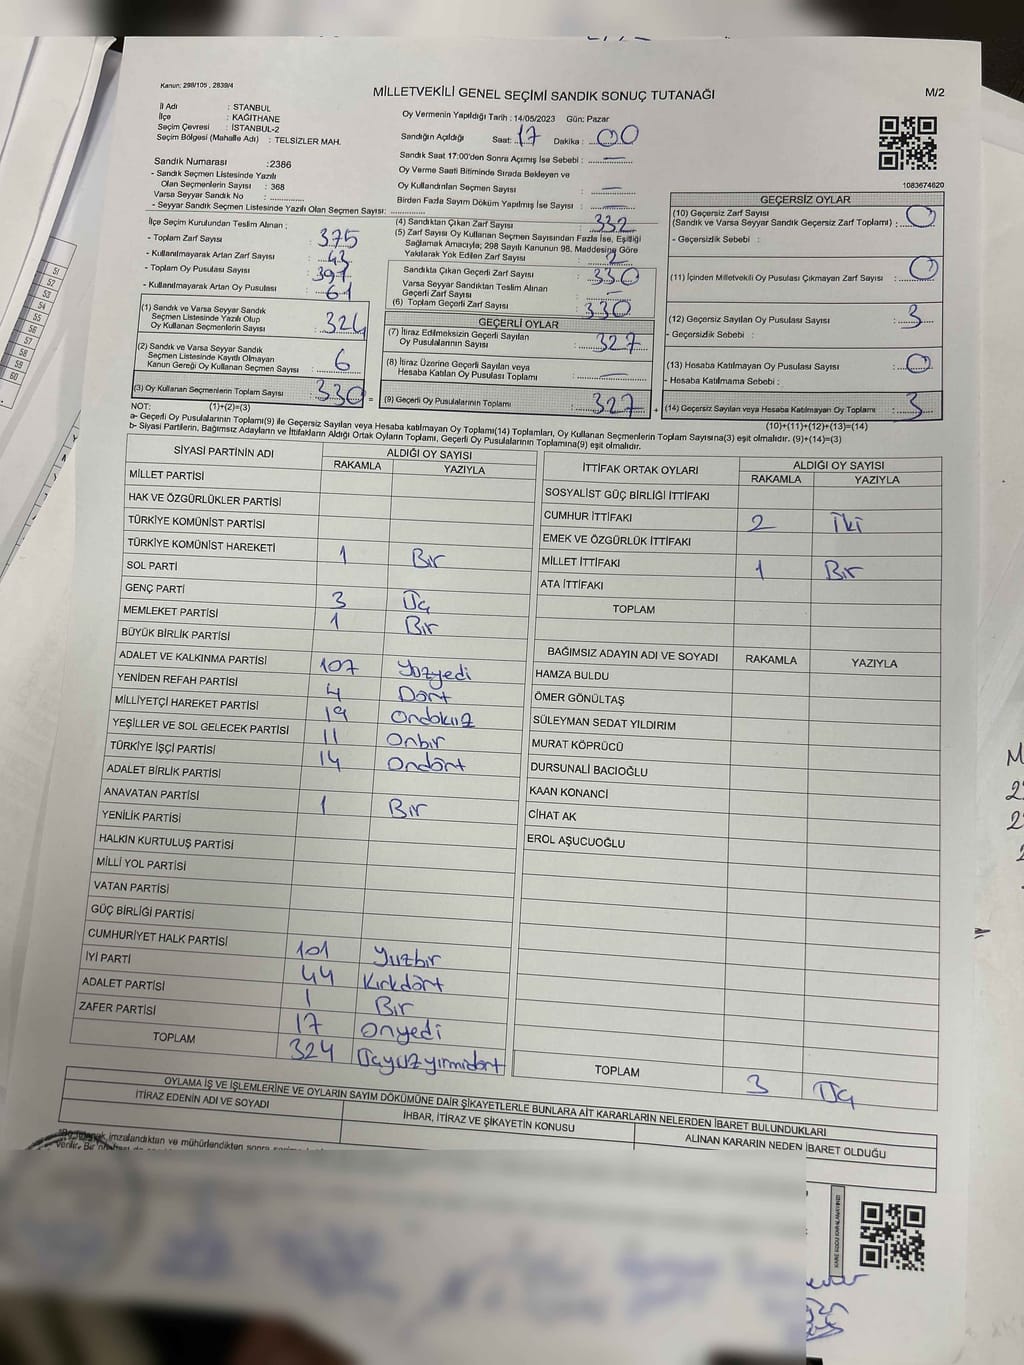 Kanun: 298/105 , 2839/4
MİLLETVEKİLİ GENEL SEÇİMİ SANDIK SONUÇ TUTANAĞI
M/2
İl Adı : İSTANBUL
İlçe : KAĞITHANE
Seçim Çevresi : İSTANBUL-2
Seçim Bölgesi (Mahalle Adı) : TELSİZLER MAH.
Oy Vermenin Yapıldığı Tarih : 14/05/2023 Gün: Pazar
Sandığın Açıldığı Saat: 17 Dakika : 00
Sandık Saat 17:00'den Sonra Açılmış İse Sebebi : —
Oy Verme Saati Bitiminde Sırada Bekleyen ve
Oy Kullandırılan Seçmen Sayısı : —
Birden Fazla Sayım Döküm Yapılmış İse Sayısı : —
1083674620
Sandık Numarası :2386
- Sandık Seçmen Listesinde Yazılı
Olan Seçmenlerin Sayısı : 368
Varsa Seyyar Sandık No :
- Seyyar Sandık Seçmen Listesinde Yazılı Olan Seçmen Sayısı:
İlçe Seçim Kurulundan Teslim Alınan ;
- Toplam Zarf Sayısı : 375
- Kullanılmayarak Artan Zarf Sayısı : 43
- Toplam Oy Pusulası Sayısı : 391
- Kullanılmayarak Artan Oy Pusulası : 61
(1) Sandık ve Varsa Seyyar Sandık
Seçmen Listesinde Yazılı Olup
Oy Kullanan Seçmenlerin Sayısı : 324
(2) Sandık ve Varsa Seyyar Sandık
Seçmen Listesinde Kayıtlı Olmayan
Kanun Gereği Oy Kullanan Seçmen Sayısı : 6
(3) Oy Kullanan Seçmenlerin Toplam Sayısı : 330 =
(4) Sandıktan Çıkan Zarf Sayısı : 332
(5) Zarf Sayısı Oy Kullanan Seçmen Sayısından Fazla İse, Eşitliği
Sağlamak Amacıyla; 298 Sayılı Kanunun 98. Maddesine Göre
Yakılarak Yok Edilen Zarf Sayısı : 2
Sandıkta Çıkan Geçerli Zarf Sayısı : 330
Varsa Seyyar Sandıktan Teslim Alınan
Geçerli Zarf Sayısı : —
(6) Toplam Geçerli Zarf Sayısı : 330
GEÇERLİ OYLAR
(7) İtiraz Edilmeksizin Geçerli Sayılan
Oy Pusulalarının Sayısı : 327
(8) İtiraz Üzerine Geçerli Sayılan veya
Hesaba Katılan Oy Pusulası Toplamı : —
(9) Geçerli Oy Pusulalarının Toplamı : 327 +
GEÇERSİZ OYLAR
(10) Geçersiz Zarf Sayısı
(Sandık ve Varsa Seyyar Sandık Geçersiz Zarf Toplamı) : 0
- Geçersizlik Sebebi :
(11) İçinden Milletvekili Oy Pusulası Çıkmayan Zarf Sayısı : 0
(12) Geçersiz Sayılan Oy Pusulası Sayısı : 3
- Geçersizlik Sebebi :
(13) Hesaba Katılmayan Oy Pusulası Sayısı : 0
- Hesaba Katılmama Sebebi :
(14) Geçersiz Sayılan veya Hesaba Katılmayan Oy Toplamı : 3
NOT: (1)+(2)=(3)
(10)+(11)+(12)+(13)=(14)
a- Geçerli Oy Pusulalarının Toplamı(9) ile Geçersiz Sayılan veya Hesaba katılmayan Oy Toplamı(14) Toplamları, Oy Kullanan Seçmenlerin Toplam Sayısına(3) eşit olmalıdır. (9)+(14)=(3)
b- Siyasi Partilerin, Bağımsız Adayların ve İttifakların Aldığı Ortak Oyların Toplamı, Geçerli Oy Pusulalarının Toplamına(9) eşit olmalıdır.
SİYASİ PARTİNİN ADI ALDIĞI OY SAYISI
RAKAMLA YAZIYLA
MİLLET PARTİSİ
HAK VE ÖZGÜRLÜKLER PARTİSİ
TÜRKİYE KOMÜNİST PARTİSİ
TÜRKİYE KOMÜNİST HAREKETİ 1 Bir
SOL PARTİ
GENÇ PARTİ 3 Üç
MEMLEKET PARTİSİ 1 Bir
BÜYÜK BİRLİK PARTİSİ
ADALET VE KALKINMA PARTİSİ 107 Yüzyedi
YENİDEN REFAH PARTİSİ 4 Dört
MİLLİYETÇİ HAREKET PARTİSİ 19 Ondokuz
YEŞİLLER VE SOL GELECEK PARTİSİ 11 Onbir
TÜRKİYE İŞÇİ PARTİSİ 14 Ondört
ADALET BİRLİK PARTİSİ
ANAVATAN PARTİSİ 1 Bir
YENİLİK PARTİSİ
HALKIN KURTULUŞ PARTİSİ
MİLLİ YOL PARTİSİ
VATAN PARTİSİ
GÜÇ BİRLİĞİ PARTİSİ
CUMHURİYET HALK PARTİSİ 101 Yüzbir
İYİ PARTİ 44 Kırkdört
ADALET PARTİSİ 1 Bir
ZAFER PARTİSİ 17 Onyedi
TOPLAM 324 Üçyüzyirmidört
İTTİFAK ORTAK OYLARI ALDIĞI OY SAYISI
RAKAMLA YAZIYLA
SOSYALİST GÜÇ BİRLİĞİ İTTİFAKI
CUMHUR İTTİFAKI 2 İki
EMEK VE ÖZGÜRLÜK İTTİFAKI
MİLLET İTTİFAKI 1 Bir
ATA İTTİFAKI
TOPLAM
BAĞIMSIZ ADAYIN ADI VE SOYADI RAKAMLA YAZIYLA
HAMZA BULDU
ÖMER GÖNÜLTAŞ
SÜLEYMAN SEDAT YILDIRIM
MURAT KÖPRÜCÜ
DURSUNALİ BACIOĞLU
KAAN KONANCİ
CİHAT AK
EROL AŞUCUOĞLU
TOPLAM 3 Üç
OYLAMA İŞ VE İŞLEMLERİNE VE OYLARIN SAYIM DÖKÜMÜNE DAİR ŞİKAYETLERLE BUNLARA AİT KARARLARIN NELERDEN İBARET BULUNDUKLARI
İTİRAZ EDENİN ADI VE SOYADI İHBAR, İTİRAZ VE ŞİKAYETİN KONUSU ALINAN KARARIN NEDEN İBARET OLDUĞU
imzalandıktan ve mühürlendikten sonra
51
52
53
54
55
56
57
58
59
60